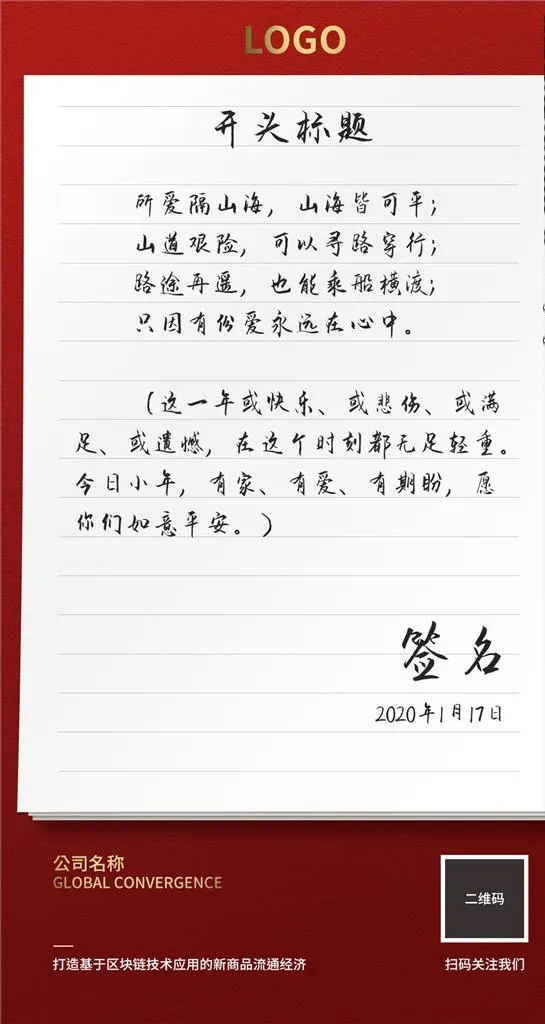 LOGO
开头标题
所爱隔山海，山海皆可平；
山道艰险，可以寻路穿行；
路途再遥，也能乘船横渡；
只因有份爱永远在心中。
（这一年或快乐、或悲伤、或满
足、或遗憾，在这个时刻都无足轻重。
今日小年，有家、有爱、有期盼，愿
你们如意平安。）
签名
2020年1月17日
公司名称
GLOBAL CONVERGENCE
二维码
打造基于区块链技术应用的新商品流通经济
扫码关注我们